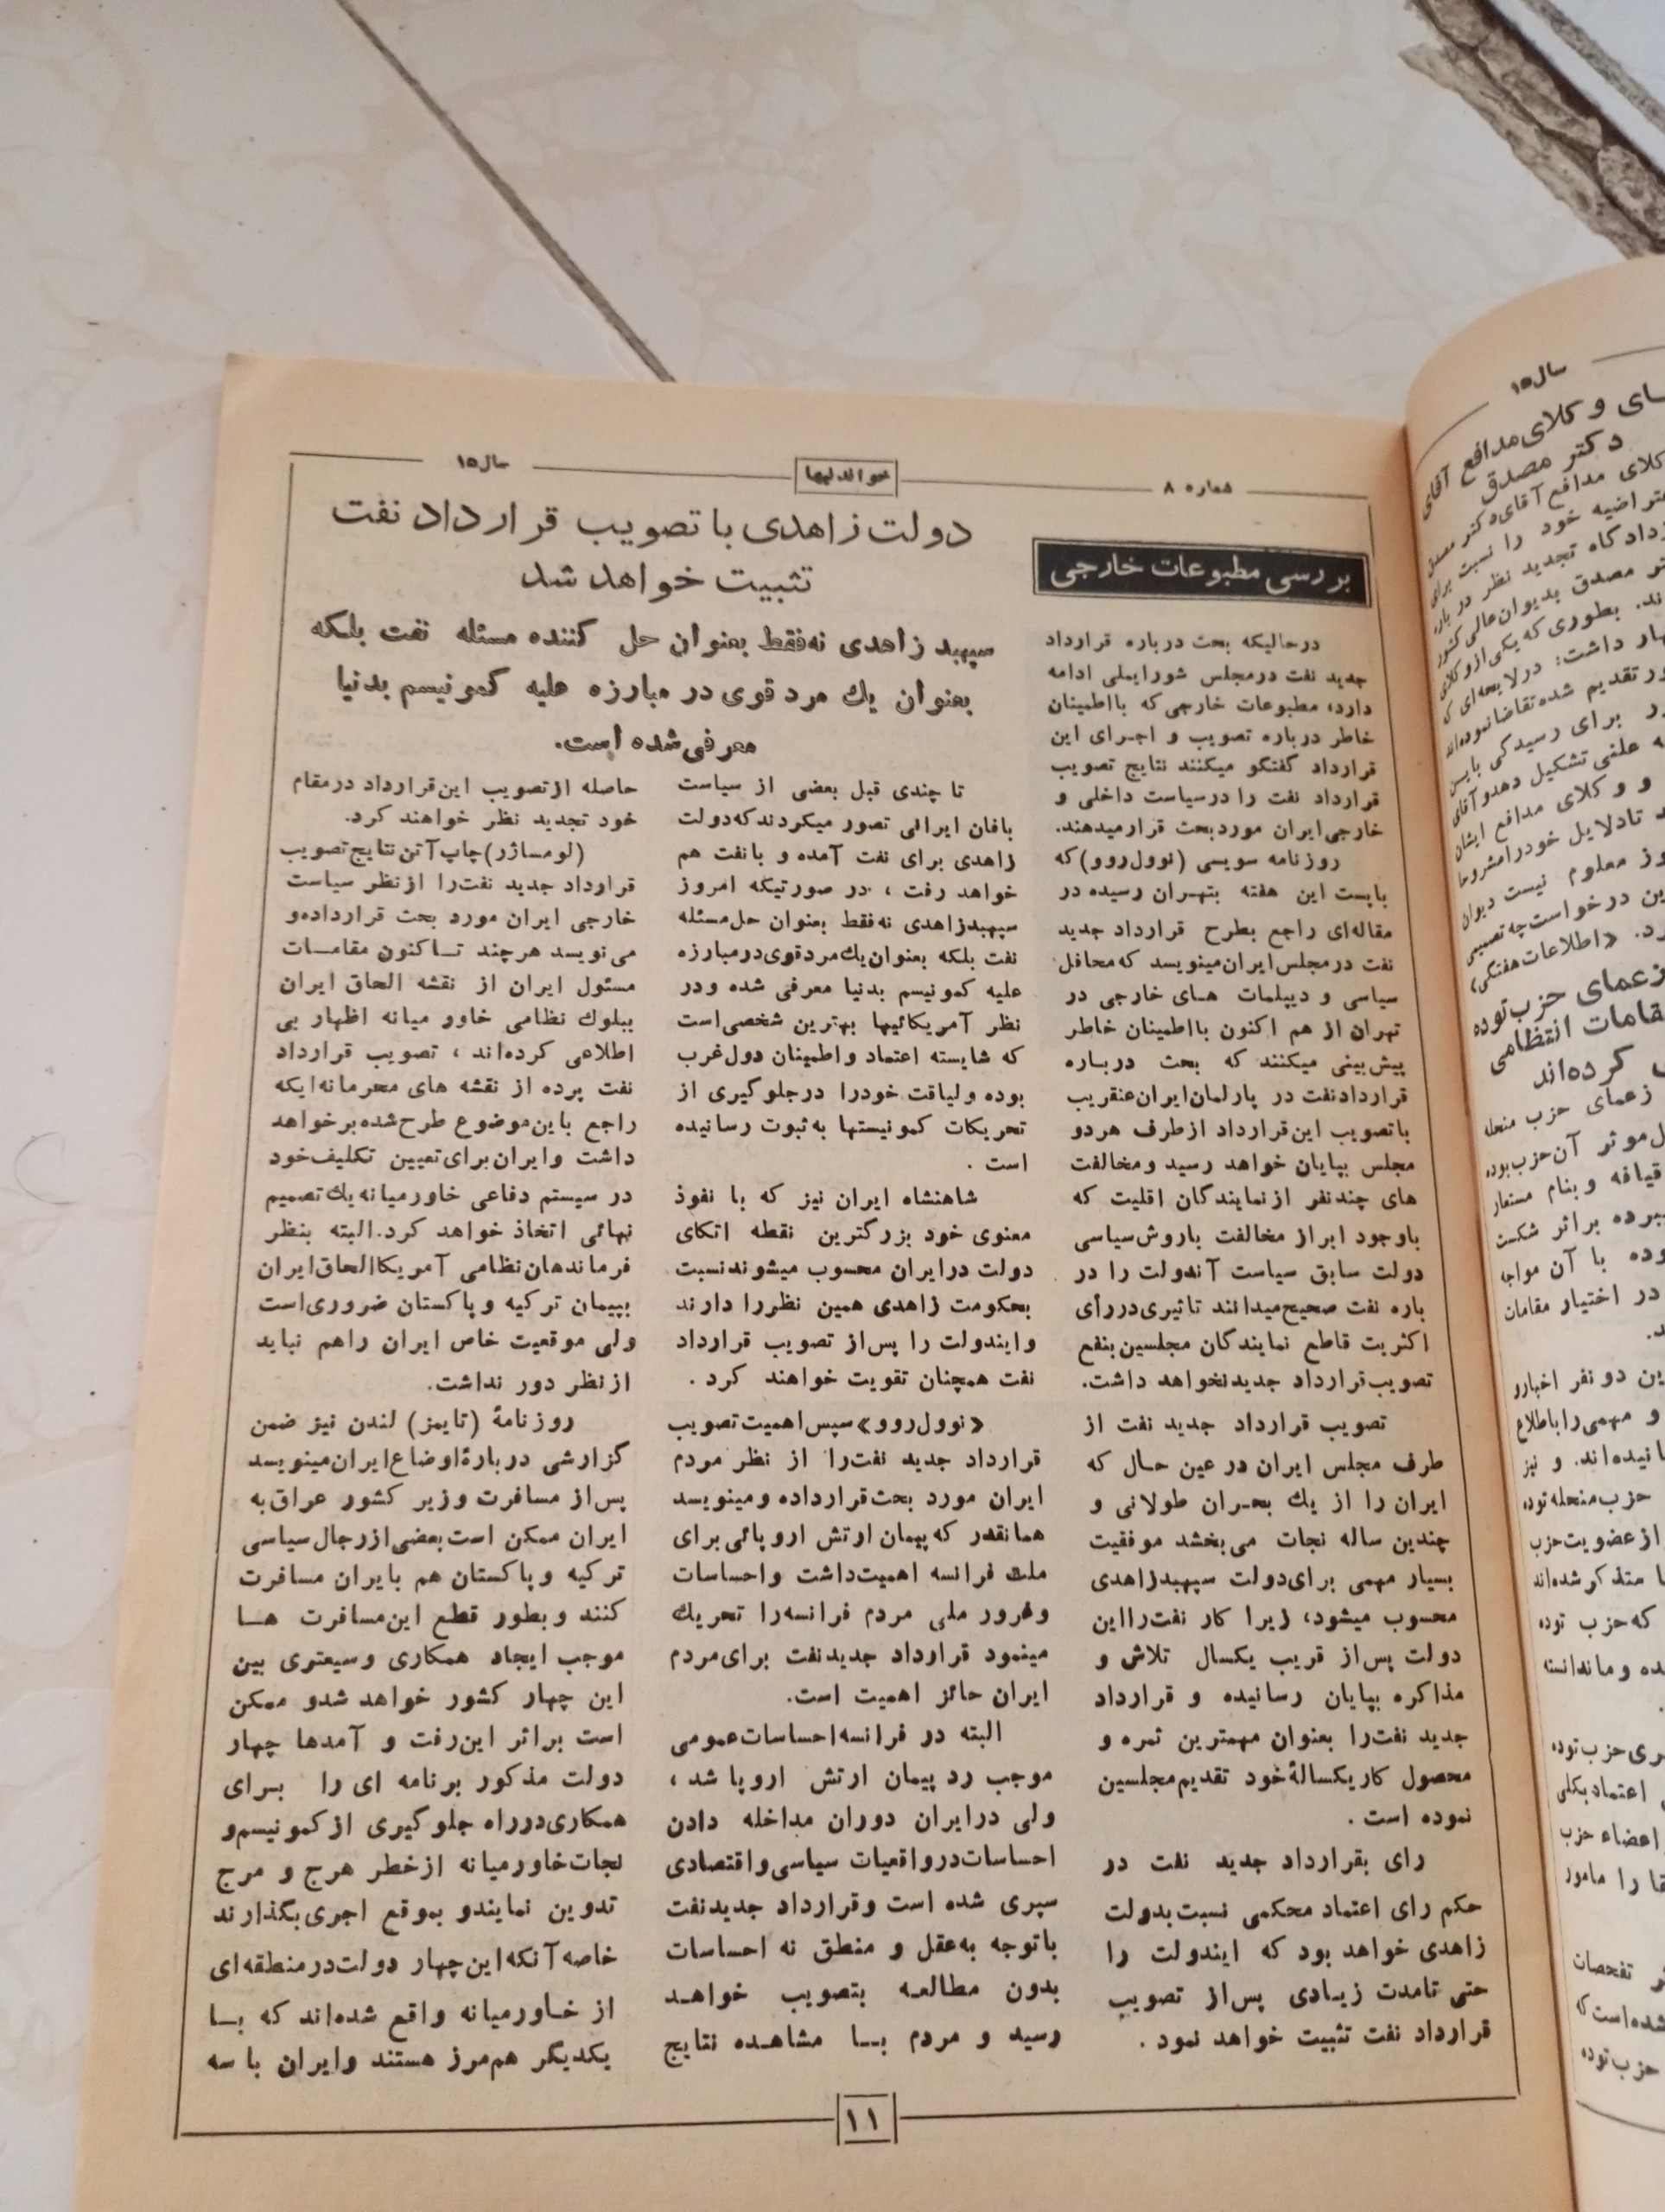 شماره ۸
خواندنیها
سال ۱۵
بررسی مطبوعات خارجی
دولت زاهدی با تصویب قرارداد نفت
تثبیت خواهد شد
سپهبد زاهدی نه فقط بعنوان حل کننده مسئله نفت بلکه
بعنوان یك مرد قوی در مبارزه علیه کمونیسم بدنیا
معرفی شده است.
درحالیکه بحث درباره قرارداد
جدید نفت در مجلس شورایملی ادامه
دارد، مطبوعات خارجی که بااطمینان
خاطر درباره تصویب و اجرای این
قرارداد گفتگو میکنند نتایج تصویب
قرارداد نفت را در سیاست داخلی و
خارجی ایران مورد بحث قرار میدهند.
روزنامه سویسی (نوول روو) که
باپست این هفته بتهران رسیده در
مقاله‌ای راجع بطرح قرارداد جدید
نفت در مجلس ایران مینویسد که محافل
سیاسی و دیپلمات های خارجی در
تهران از هم اکنون بااطمینان خاطر
پیش بینی میکنند که بحث درباره
قرارداد نفت در پارلمان ایران عنقریب
باتصویب این قرارداد از طرف هر دو
مجلس بپایان خواهد رسید و مخالفت
های چند نفر از نمایندگان اقلیت که
باوجود ابراز مخالفت باروش سیاسی
دولت سابق سیاست آندولت را در
باره نفت صحیح میدانند تاثیری در رأی
اکثریت قاطع نمایندگان مجلسین بنفع
تصویب قرارداد جدید نخواهد داشت.
تصویب قرارداد جدید نفت از
طرف مجلس ایران در عین حال که
ایران را از یك بحران طولانی و
چندین ساله نجات می بخشد موفقیت
بسیار مهمی برای دولت سپهبد زاهدی
محسوب میشود، زیرا کار نفت را این
دولت پس از قریب یکسال تلاش و
مذاکره بپایان رسانیده و قرارداد
جدید نفت را بعنوان مهمترین ثمره و
محصول کار یکسالهٔ خود تقدیم مجلسین
نموده است .
رای بقرارداد جدید نفت در
حکم رای اعتماد محکمی نسبت بدولت
زاهدی خواهد بود که ایندولت را
حتی تامدت زیادی پس از تصویب
قرارداد نفت تثبیت خواهد نمود .
تا چندی قبل بعضی از سیاست
بافان ایرانی تصور میکردند که دولت
زاهدی برای نفت آمده و با نفت هم
خواهد رفت ، در صورتیکه امروز
سپهبد زاهدی نه فقط بعنوان حل مسئله
نفت بلکه بعنوان یك مرد قوی در مبارزه
علیه کمونیسم بدنیا معرفی شده و در
نظر آمریکائیها بهترین شخصی است
که شایسته اعتماد و اطمینان دول غرب
بوده و لیاقت خود را در جلوگیری از
تحریکات کمونیستها به ثبوت رسانیده
است .
شاهنشاه ایران نیز که با نفوذ
معنوی خود بزرگترین نقطه اتکای
دولت در ایران محسوب میشوند نسبت
بحکومت زاهدی همین نظر را دارند
و ایندولت را پس از تصویب قرارداد
نفت همچنان تقویت خواهند کرد .
«نوول روو» سپس اهمیت تصویب
قرارداد جدید نفت را از نظر مردم
ایران مورد بحث قرار داده و مینویسد
همانقدر که پیمان ارتش اروپائی برای
ملت فرانسه اهمیت داشت و احساسات
و غرور ملی مردم فرانسه را تحریك
مینمود قرارداد جدید نفت برای مردم
ایران حائز اهمیت است.
البته در فرانسه احساسات عمومی
موجب رد پیمان ارتش اروپا شد ،
ولی در ایران دوران مداخله دادن
احساسات در واقعیات سیاسی و اقتصادی
سپری شده است و قرارداد جدید نفت
با توجه به عقل و منطق نه احساسات
بدون مطالعه بتصویب خواهد
رسید و مردم با مشاهده نتایج
حاصله از تصویب این قرارداد در مقام
خود تجدید نظر خواهند کرد.
(لومساژر) چاپ آتن نتایج تصویب
قرارداد جدید نفت را از نظر سیاست
خارجی ایران مورد بحث قرار داده و
می نویسد هرچند تاکنون مقامات
مسئول ایران از نقشه الحاق ایران
ببلوك نظامی خاور میانه اظهار بی
اطلاعی کرده‌اند ، تصویب قرارداد
نفت پرده از نقشه های محرمانه ایکه
راجع باین موضوع طرح شده بر خواهد
داشت و ایران برای تعیین تکلیف خود
در سیستم دفاعی خاور میانه یك تصمیم
نهائی اتخاذ خواهد کرد. البته بنظر
فرماندهان نظامی آمریکا الحاق ایران
بپیمان ترکیه و پاکستان ضروری است
ولی موقعیت خاص ایران را هم نباید
از نظر دور نداشت.
روزنامهٔ (تایمز) لندن نیز ضمن
گزارشی دربارهٔ اوضاع ایران مینویسد
پس از مسافرت وزیر کشور عراق به
ایران ممکن است بعضی از رجال سیاسی
ترکیه و پاکستان هم بایران مسافرت
کنند و بطور قطع این مسافرت ها
موجب ایجاد همکاری وسیعتری بین
این چهار کشور خواهد شد و ممکن
است بر اثر این رفت و آمدها چهار
دولت مذکور برنامه ای را برای
همکاری در راه جلوگیری از کمونیسم و
نجات خاور میانه از خطر هرج و مرج
تدوین نمایند و بموقع اجری بگذارند
خاصه آنکه این چهار دولت در منطقه ای
از خاور میانه واقع شده‌اند که با
یکدیگر هم مرز هستند و ایران با سه
۱۱
سال ۱۵
و کلای مدافع آقای
دکتر مصدق
کلای مدافع آقای دکتر مصدق
خود را نسبت برای
دادگاه تجدید نظر در باره
مصدق بدیوان عالی کشور
بطوری که یکی از وکلای
داشت: در لایحه ای که
تقدیم شده تقاضا نموده‌اند
برای رسیدگی باین
علنی تشکیل دهد و آقای
و وکلای مدافع ایشان
تا دلایل خود را مشروحا
معلوم نیست دیوان
درخواست چه تصمیمی
«اطلاعات هفتگی»
زعمای حزب توده
مقامات انتظامی
کرده‌اند
زعمای حزب منحله
موثر آن حزب بوده
قیافه و بنام مستعار
بر اثر شکست
با آن مواجه
در اختیار مقامات
دو نفر اخبار و
و مهمی را باطلاع
و نیز
حزب منحله توده
از عضویت حزب
متذکر شده‌اند
که حزب توده
حزب توده
اعتماد بکلی
اعضاء حزب
را مامور
تفحصات
شده است که
حزب توده